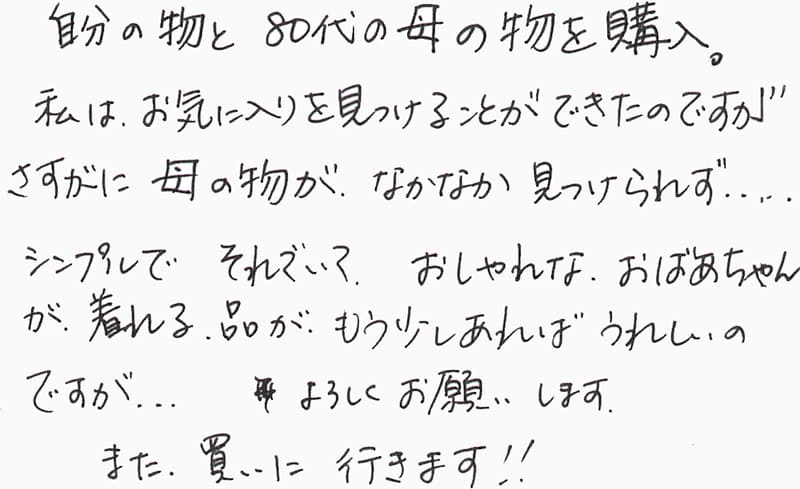 自分の物と 80代の母の物を購入。
私は、お気に入りを見つけることができたのですが
さすがに 母の物が、なかなか 見つけられず‥‥
シンプルで それでいて、おしゃれな、おばあちゃん
が、着れる、品が、もう少しあれば うれしいの
ですが… よろしくお願いします。
また、買いに 行きます!!